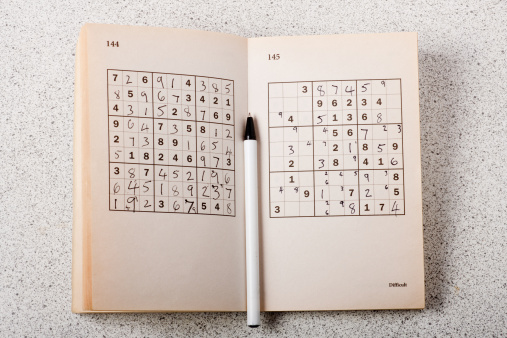 144
7 2 6 9 1 4 3 8 5
8 5 9 6 7 3 4 2 1
4 3 1 5 2 8 7 6 9
9 6 4 7 3 5 8 1 2
2 7 3 8 9 1 6 5 4
5 1 8 2 4 6 9 7 3
3 8 7 4 5 2 1 9 6
6 4 5 1 8 9 2 3 7
1 9 2 3 6 7 5 4 8
145
3 8 7 4 5 9
9 6 2 3 4
9 4 5 1 3 6 8
9 4 5 6 7 2 3
3 7 2 1 8 5 9
2 3 8 9 4 1 6
1
7 2 5
3 8 1 7 4
Difficult